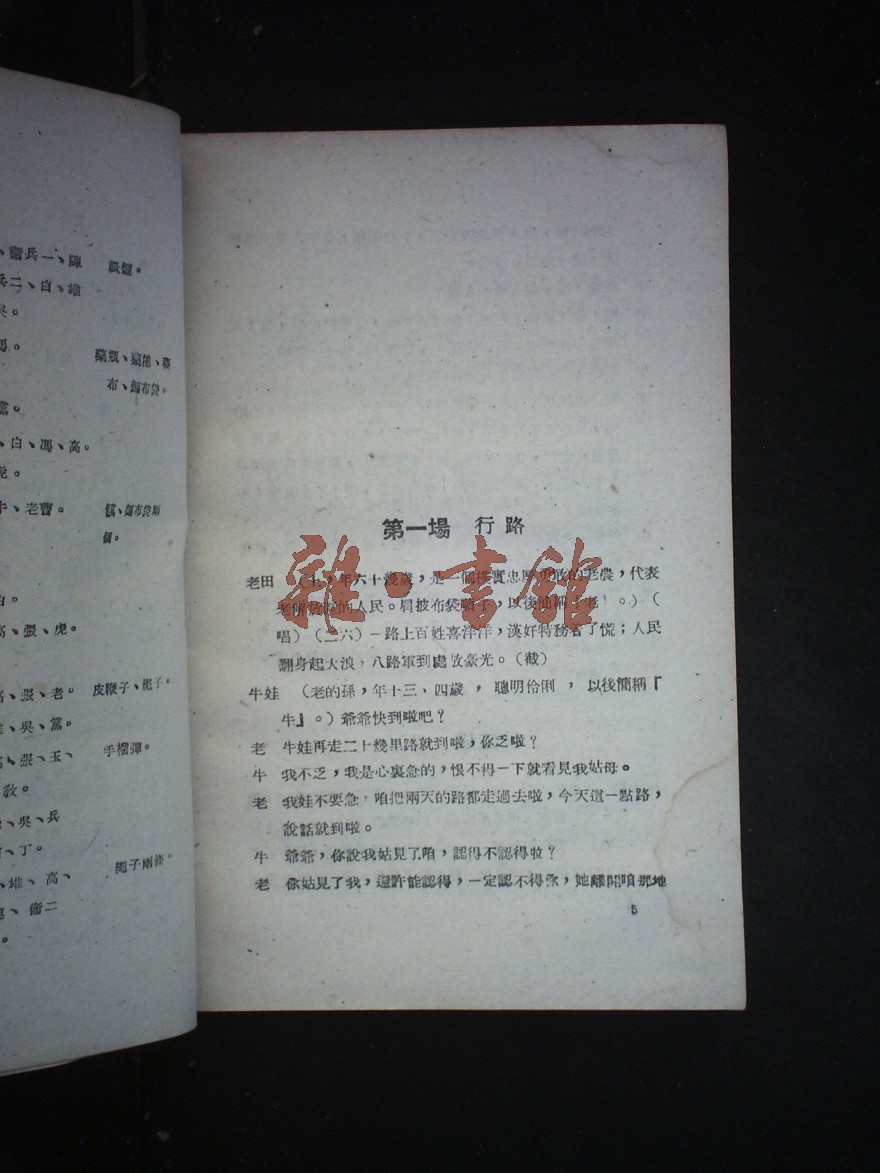 、衞兵一、陳 紙煙。
兵二、白、維
藥瓶、藥
布、
、白、馮、高。
虎。
牛、老曹。
個。
高、張、虎。
高、張、老。 皮鞭子、棍子。
、吳、黨。
高、張、玉、 手榴彈。
敎。
、吳、兵
、丁。 繩子兩條。
、維、高、
、衞二
第一場 行路
老田 (上，年六十幾歲，是一個樸實忠厚勇敢的老農，代表
的人民。肩披布袋
唱）（二六）一路上百姓喜洋洋，漢奸特務着了慌；人民
翻身起大浪，八路軍到處放豪光。（截）
牛娃 （老的孫，年十三、四歲，聰明伶俐，以後簡稱『
牛』。）爺爺快到啦吧？
老 牛娃再走二十幾里路就到啦，你乏啦？
牛 我不乏，我是心裏急的，恨不得一下就看見我姑母。
老 我娃不要急，咱把兩天的路都走過去啦，今天這一點路，
說話就到啦。
牛 爺爺，你說我姑見了咱，認得不認得啦？
老 你姑見了我，還許能認得，一定認不得你，她離開咱那地
5
雜·書館